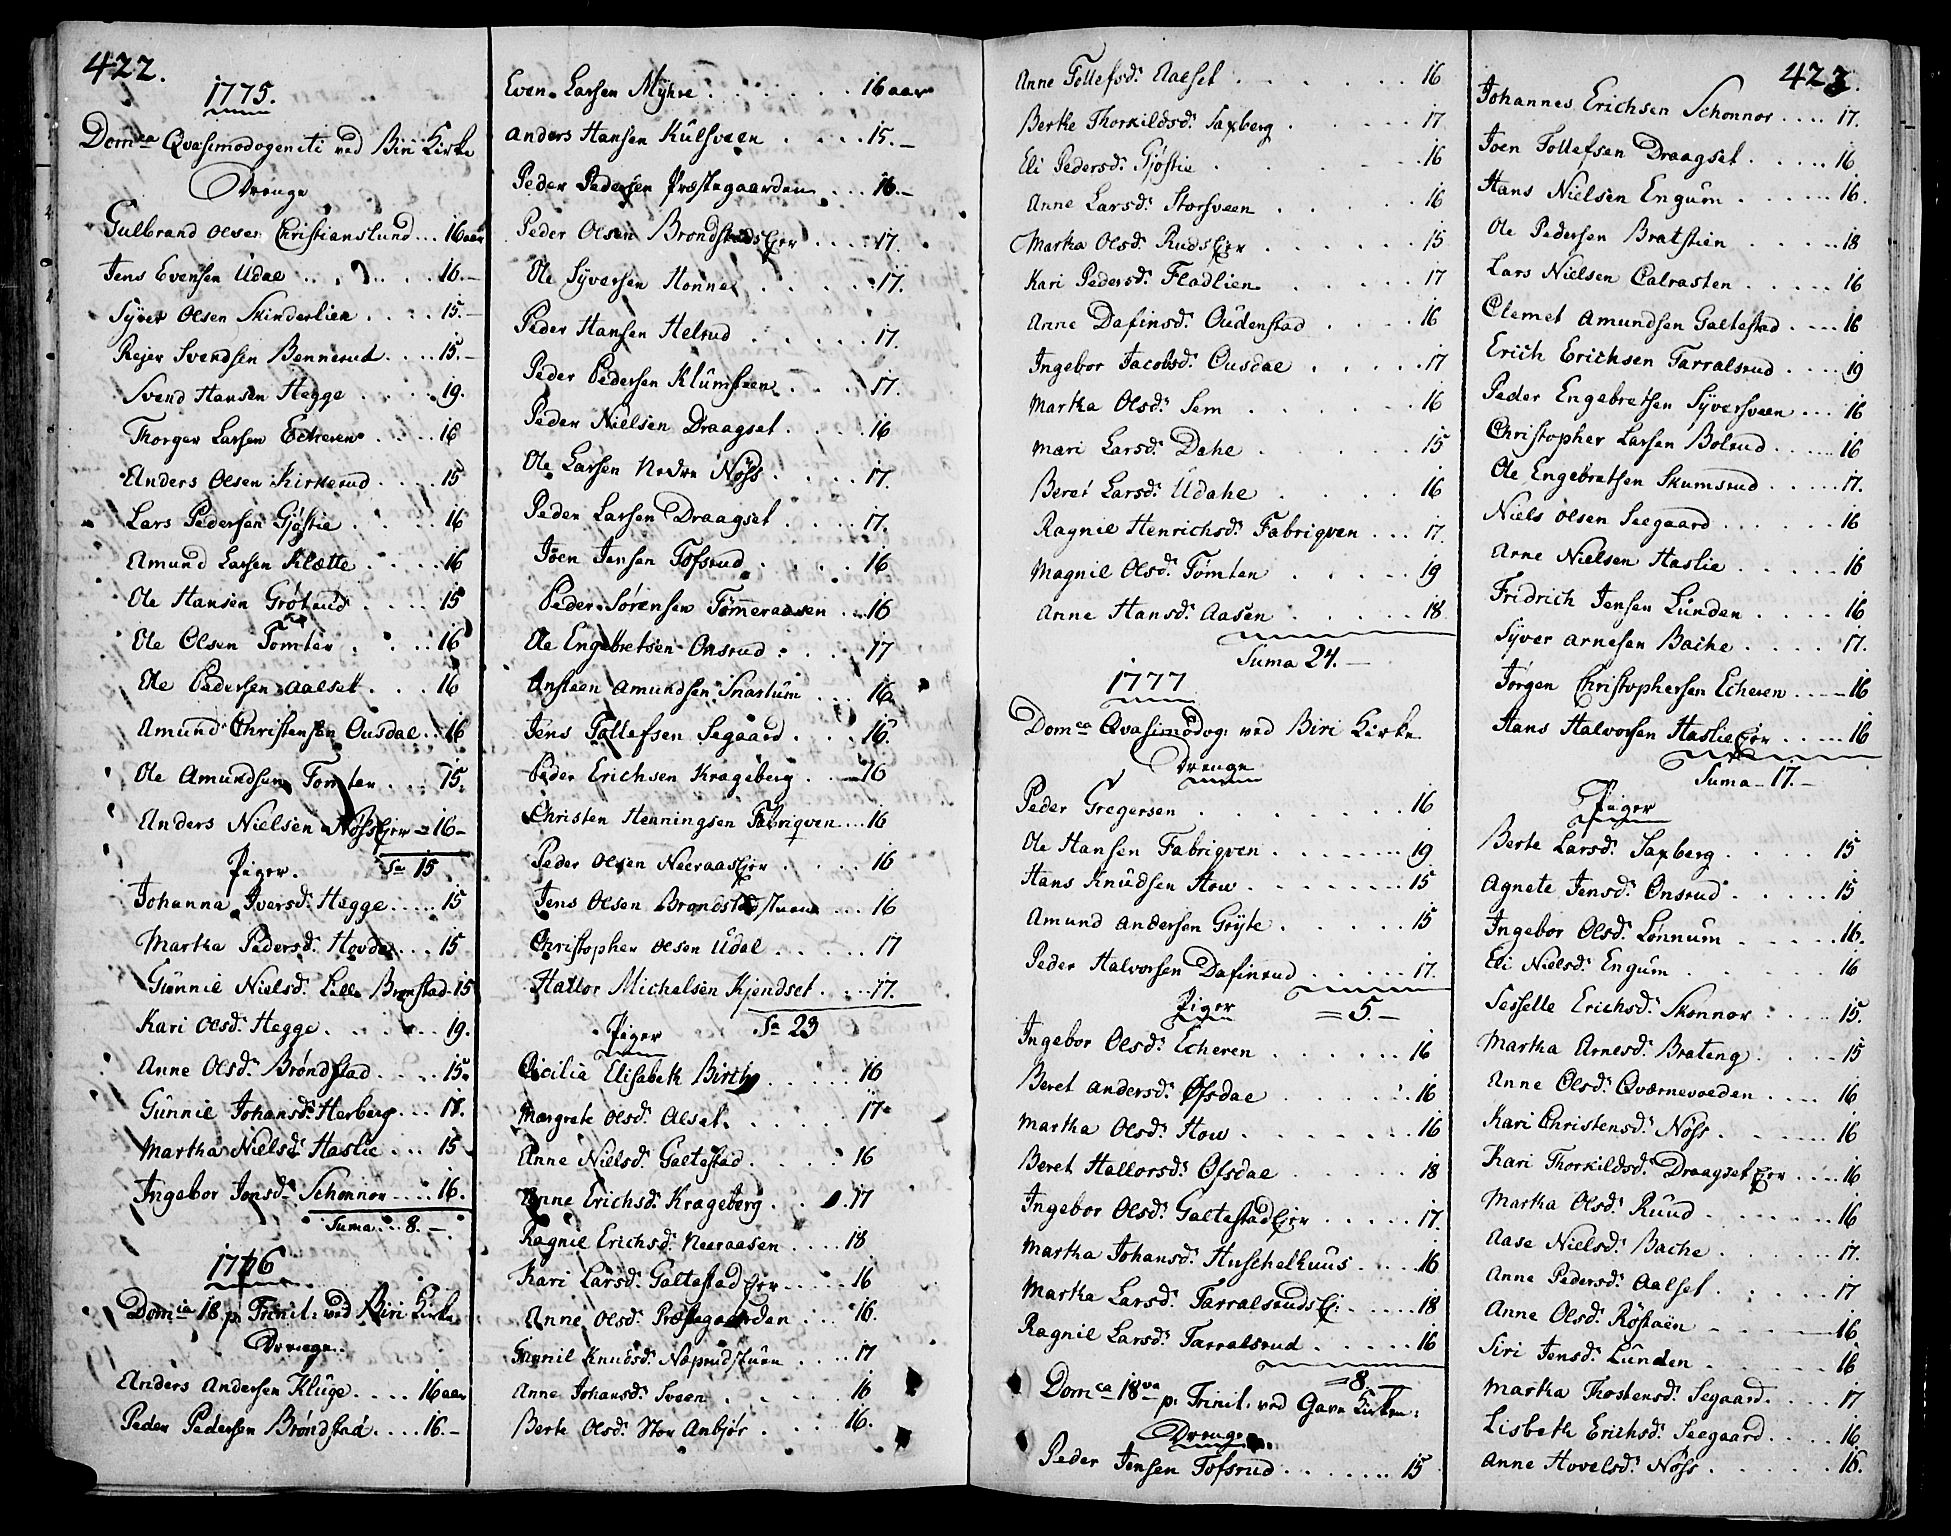 422.
1775.
Domca Qvasimodogeniti ved Biri Kirke
Drenge
Gulbrand Olsen Christianslund... 16 aar
Jens Evensen Udal . . . 16.—
Syver Olsen Skinderlien . . . . 15.—
Rejer Svendsen Bennerud . . . . 15.—
Svend Hansen Hegge . . . . . 19.
Thorger Larsen Echeren . . . . 16
Anders Olsen Kirkerud . . . . 15
Lars Pedersen Gjøstie . . . . . 16
Amund Larsen Klætte . . . . . 16
Ole Hansen . . . . 15
Ole Olsen Tomter . . . . 16
Ole Pedersen Aalset . . . 16
Amund Christensen Ousdal . . 16
Ole Amundsen Tomter . . . 15.
Anders Nielsen Nøss Ejer — 16—
Piger. Sa 15
Johanna Iversd: Hegge . . . . . 15
Martha Pedersd: Hovde . . . 15
Gunnil Nielsd: Lille Bronstad 15
Kari Olsd: Hegge . . . . . 19.
Anne Olsd: Brøndstad . . . . 15.
Gunnil Johansd: Herberg . . . 17.
Martha Nielsd: Haslie . . . 15
Ingebor Jonsd: Schonnor . . . . 16.
Suma . . . 8.—
1776
Domca 18 p. Trinit: ved Biri Kirke
Drenge.
Anders Andersen Kluge . . . . 16 aar
Peder Pedersen Brøndstad . . . . 16.—
Even Larsen Myhre . . . . . . . 16 aar
Anders Hansen Kulsveen . . . . 15.—
Peder Pedersen Præstegaarden . . . 16.—
Peder Olsen Brondstads Ejer . . . . 17.
Ole Syversen Honne . . . . . 17.
Peder Hansen Helrud . . . . . . 17.
Peder Pedersen Klumsteen . . . . 17.
Peder Nielsen Draagset . . . . 16
Ole Larsen Nedre Nöss . . . . 17.
Peder Larsen Draagset . . . . 17.
Joen Jensen Tofsrud . . . . 16
Peder Sørensen Tømmeraasen . . . 16
Ole Engebretsen Onsrud . . . . 17
Ansteen Amundsen Snartum . . . 16
Jens Tollefsen Segaard . . . 16.
Peder Erichsen Krageberg . . — 16
Christen Henningsen Fabriqven . . . 16
Peder Olsen Neeraas Ejer . . . . 16
Jens Olsen Brondstad stuen . . . 16
Christopher Olsen Udal . . . . . . 17
Hallor Michelsen Kjendset . . . . 17.
Piger Sa 23
Cicilia Elisabeth Birch . . . . . 16
Margrete Olsd: Alset . . . . . 17.
Anne Nielsd: Galtestad . . . . . 16
Anne Erichsd: Krageberg . . . 17
Ragnil Erichsd: Neeraasen . . . . 18
Kari Larsd: Galtestad Ejer . . . . 16
Anne Olsd: Præstegaarden . . . 16.
Gunil Knudsd: Næprudstuen . . . . 17
Anne Johansd: Sveen . . . . . 16
Berte Olsd: Stor Anbjør . . . . 16.
Anne Tollefsd: Aalset . . . . . . 16
Berthe Thorkildsd: Saxberg . . . . . 17
Eli Pedersd: Gjøstie . . . . . . 16
Anne Larsd: Storsveen . . . . . . 16
Martha Olsd: Ruds Ejer . . . . . . 15
Kari Pedersd: Fladlien . . . . . . 17
Anne Dafinsd: Oudenstad . . . . 16
Ingebor Jacobsd: Ousdal . . . . . 17
Martha Olsd: Sem . . . . . . . 16
Mari Larsd: Dahe . . . . . . 15
Beret Larsd: Udahe . . . . . 16
Ragnil Henrichsd: Fabriqven . . . 17.
Magnil Olsd: Tömten . . . . . 19
Anne Hansd: Aasen . . . . . . 18
Suma 24.—
1777
Domca Qvasimodog: ved Biri Kirke
Drenge
Peder Gregersen . . . . . . . . 16
Ole Hansen Fabriqven . . . . . . . 19
Hans Knudsen How . . . . . . . . 15
Amund Andersen Gryte . . . . . . 15
Peder Halvorsen Dafinrud . . . . . . 17.
Piger = 5.—
Ingebor Olsd: Echeren . . . . . . 16
Beret Andersd: Öfsdal . . . . . 16
Martha Olsd: How . . . . . . . 16
Beret Hallorsd: Ofsdal . . . . . 18
Ingebor Olsd: Galtestad Ejer . . . . . 17.
Martha Johansd: Huschelhuus . . . . 16
Martha Larsd: Tarralsruds Ej: . . . . . 18
Ragnil Larsd: Tarralsrud . . . . . 16
=8.
Domca 18va p. Trinit: ved Gava Kirke:
Drenge.
Peder Jensen Tofsrud . . . . . . . . 15
423.
Johannes Erichsen Schonnor . . . . 17.
Joen Tollefsen Draagset . . . . . 16
Hans Nielsen Engum . . . . . . 16.
Ole Pedersen Bratstien . . . . . 18
Lars Nielsen Calrasten . . . . . 16
Clemet Amundsen Galtestad . . . . 16
Erich Erichsen Tarralsrud . . . . 19
Peder Engebretsen Syversveen . . . 16
Christopher Larsen Bolrud . . . . . 16
Ole Engebretsen Skumsrud . . . . . 17.
Niels Olsen Seegaard . . . . . . 16
Arne Nielsen Haslie . . . . . 16
Fridrich Jensen Lunden . . . . . 16
Syver Arnesen Bache . . . . . 17.
Jörgen Christophersen Echeren . . . . 16
Hans Halvorsen Haslie Ejer . . . . . 16
Suma — 17.—
Piger
Berte Larsd: Saxberg . . . . . 15
Agnete Jensd: Onsrud . . . . . 15
Ingebor Olsd: Lønnum . . . . . 16.
Eli Nielsd: Engum . . . . . . 16
Sesselle Erichsd: Skonnor . . . . 15.
Martha Arnesd: Brateng . . . . 15
Anne Olsd: Qværnevolden . . . . 16
Kari Christensd: Nöss . . . . . . 16
Kari Thorkildsd: Draagset Ejer . . . . 16
Martha Olsd: Ruud . . . . . . . 16
Aase Nielsd: Bache . . . . . . 17.
Anne Pedersd: Aalset . . . . . 17
Anne Olsd: Röstaën . . . . . 16
Siri Jensd: Lunden . . . . . . 16
Martha Thostensd: Segaard . . . . 17
Lisbeth Erichsd: Seegaard . . . . 16
Anne Hovelsd: Nöss . . . . . . 16.